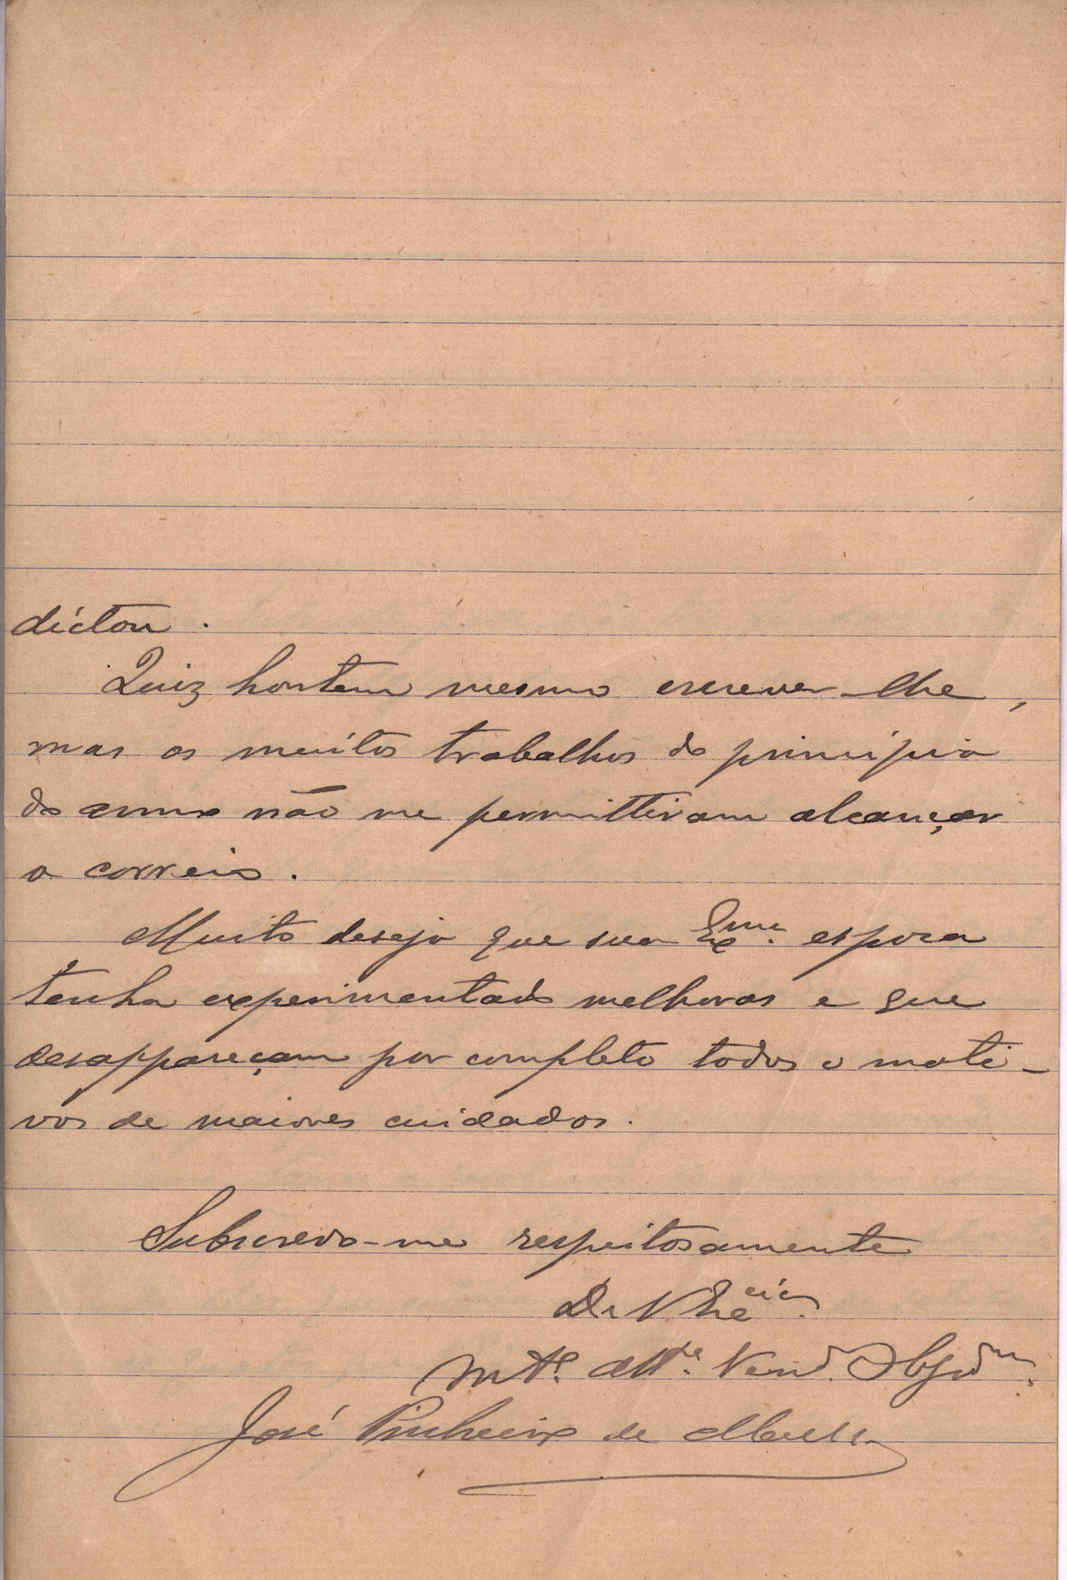 dictou.
Quiz hontem mesmo escrever-lhe,
mas os muitos trabalhos do principio
do anno não me permittiram alcançar
o correio.
Muito desejo que sua Exma. esposa
tenha experimentado melhoras e que
desappareçam por completo todos o moti-
vos de maiores cuidados.
Subscrevo-me respeitosamente
De V. Excia.
Mto. Atto. Venor. Obgdmo.
José Pinheiro de